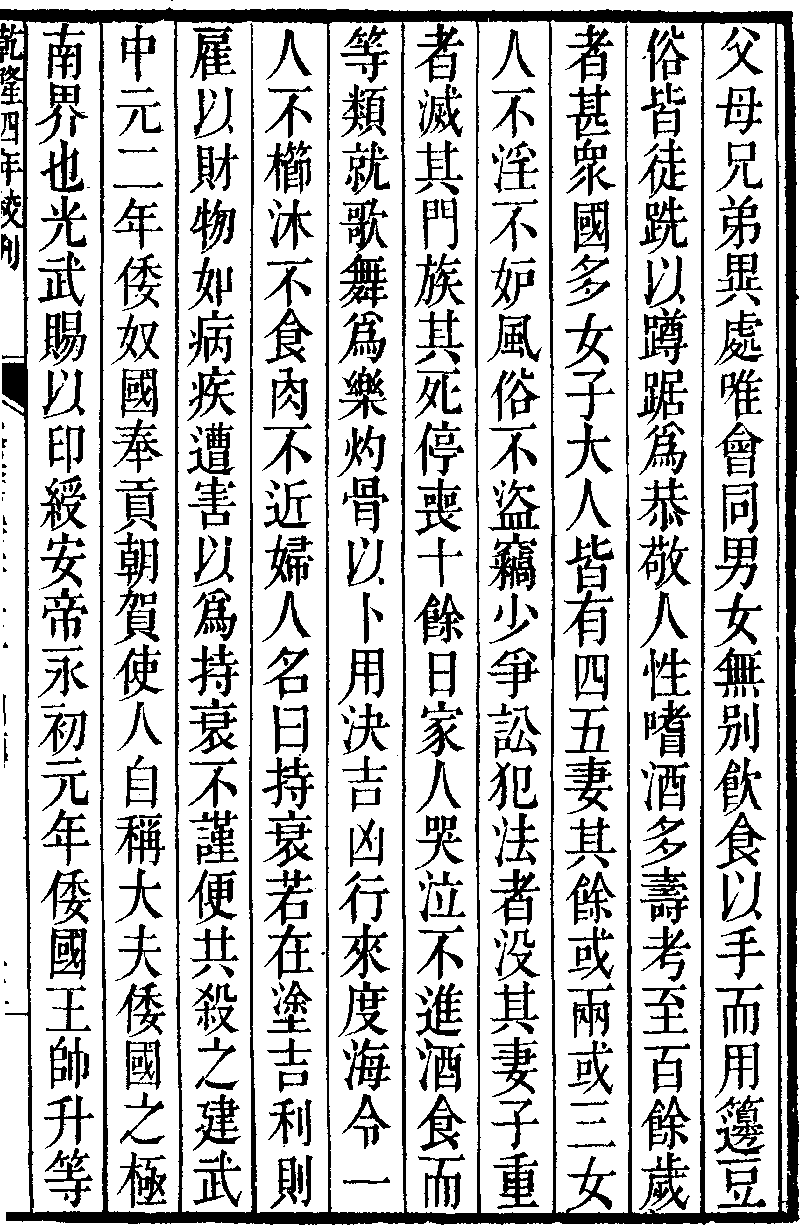 父母兄弟異處唯會同男女無別飲食以手而用籩豆
俗皆徒跣以蹲踞爲恭敬人性嗜酒多壽考至百餘歲
者甚衆國多女子大人皆有四五妻其餘或兩或三女
人不淫不妒風俗不盜竊少爭訟犯法者没其妻子重
者滅其門族其死停喪十餘日家人哭泣不進酒食而
等類就歌舞爲樂灼骨以卜用決吉凶行來度海令一
人不櫛沐不食肉不近婦人名曰持衰若在塗吉利則
雇以財物如病疾遭害以爲持衰不謹便共殺之建武
中元二年倭奴國奉貢朝賀使人自稱大夫倭國之極
南界也光武賜以印綬安帝永初元年倭國王帥升等
乾隆四年校刊